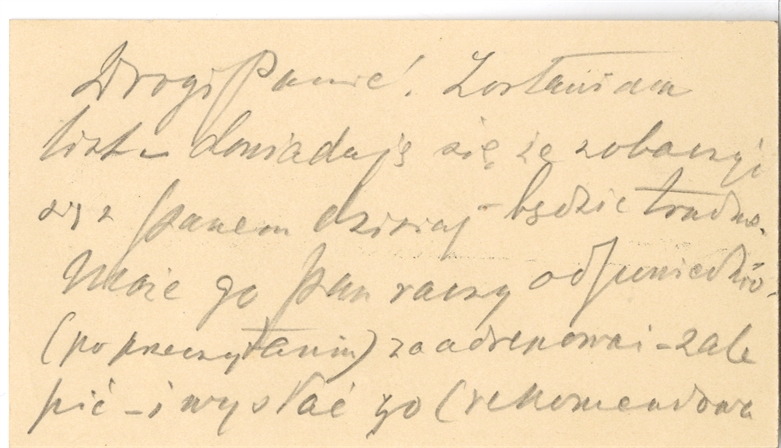 Drogi Panie! Zostawiam
list – dowiaduję się że zobaczyć
się z panem dzisiaj – będzie trudno.
Może go pan raczy odpowiednio
(po przeczytaniu) zaadresować – zale
pić – i wysłać go (rekomendowa